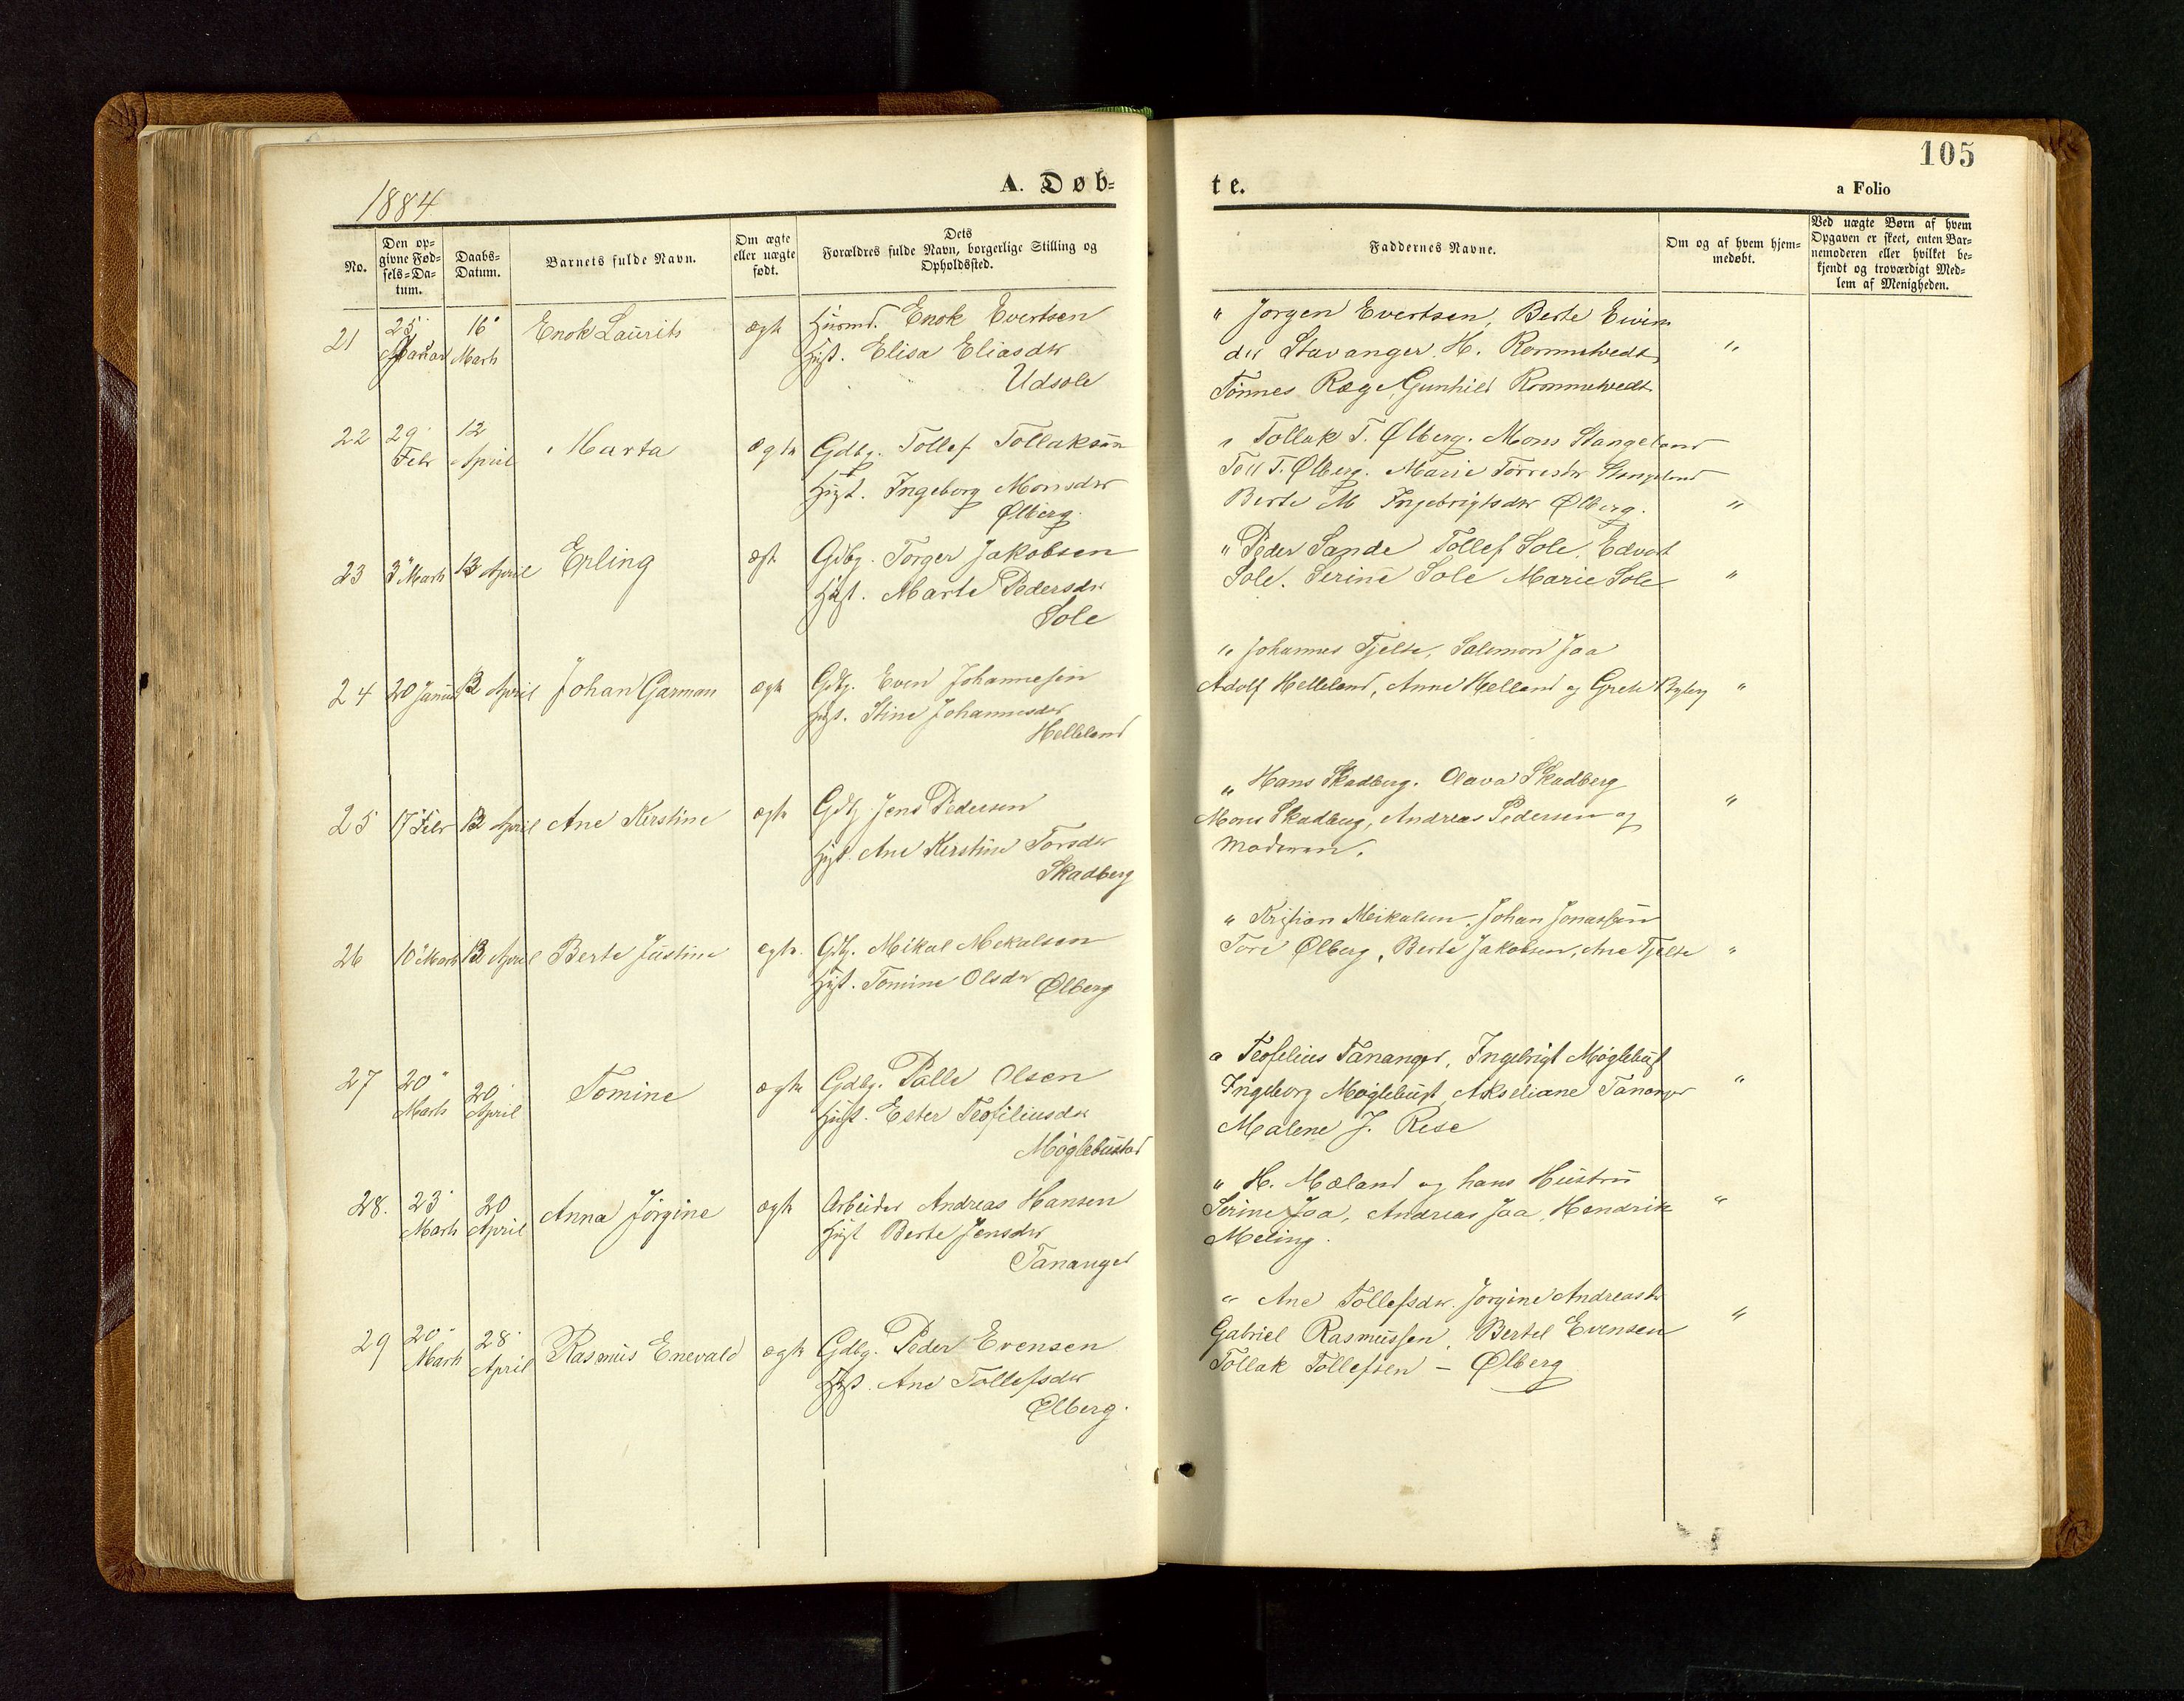 1884
A. Døb-
No.
Den op-
givne Fød-
sels-Da-
tum.
Daabs-
Datum.
Barnets fulde Navn.
Om ægte
eller uægte
født.
Dets
Forældres fulde Navn, borgerlige Stilling og
Opholdssted.
21
25
Januar
16
Marts
Enok Laurits
ægte
Husmd. Enok Evertsen
Hust. Elisa Eliasdtr
Udsole
22
29
Febr
12
April
Marta
ægte
Gdbg. Tollef Tollaksen
Hust. Ingeborg Monsdtr
Ølberg.
23
3 Marts
13 April
Erling
ægte
Gdbg. Torger Jakobsen
Hust. Marte Pedersdtr
Sole
24
20 Januar
13 April
Johan Garman
ægte
Gdbg. Even Johannesen
Hust. Stine Johannesdtr
Helleland
25
17 Febr
13 April
Ane Kerstine
ægte
Gdbg Jens Pedersen
Hust. Ane Kerstine Torsdtr
Skadberg
26
10 Marts
13 April
Berte Justine
ægte.
Gdbg. Mikal Mekalsen
Hust. Tomine Olsdtr Ølberg
27
20
Marts
20
April
Tomine
ægte
Gdbg. Palle Olsen
Hust. Ester Teofiliusdtr
Møglebustad
28.
23
Marts
20
April
Anna Jørgine
ægte
Arbeider Andreas Hansen
Hust Berte Jensdtr
Tananger
29
20
Marts
28
April
Rasmus Enevald
ægte
Gdbg. Peder Evensen
Hust. Ane Tollefsdtr
Ølberg.
105
te.
a Folio
Faddernes Navne.
Om og af hvem hjem-
medøbt.
Ved uægte Børn af hvem
Opgaven er skeet, enten Bar-
nemoderen eller hvilket be-
kjendt og troværdigt Med-
lem af Menigheden.
" Jørgen Evertsen, Berte Eivin
dtr Stavanger. H. Rommetvedt, "
Tønnes Ræge, Gunhild Rommetvedt
" Tollak T. Ølberg. Mons Stangeland
T. Ølberg. Marie Torresdtr Stangeland
Berte M Ingebrigtsdtr Ølberg. "
" Peder Sande Tollef Sole, Edvart
Sole. Serine Sole Marie Sole "
" Johannes Tjelte, Salemon Jaa
Adolf Helleland, Anne Helland og Grete Byberg "
" Hans Skadberg. Olava Skadberg
Mons Skadberg, Andreas Pedersen og "
Moderen.
" Kristian Meikalsen, Johan Jonassen
Tore Ølberg, Berte Jakobsen, Ane Tjelte "
" Teofilius Tananger, Ingebrigt Møglebust
Ingeborg Møglebust, Akseliane Tananger "
Malene J. Rese
" H. Mæland og hans Hustru
Serine Jaa, Andreas Jaa, Hendrik "
Meling.
" Ane Tollefsdtr. Jørgine Andreasdtr
Gabriel Rasmussen, Bertel Evensen "
Tollak Tollefsen – Ølberg